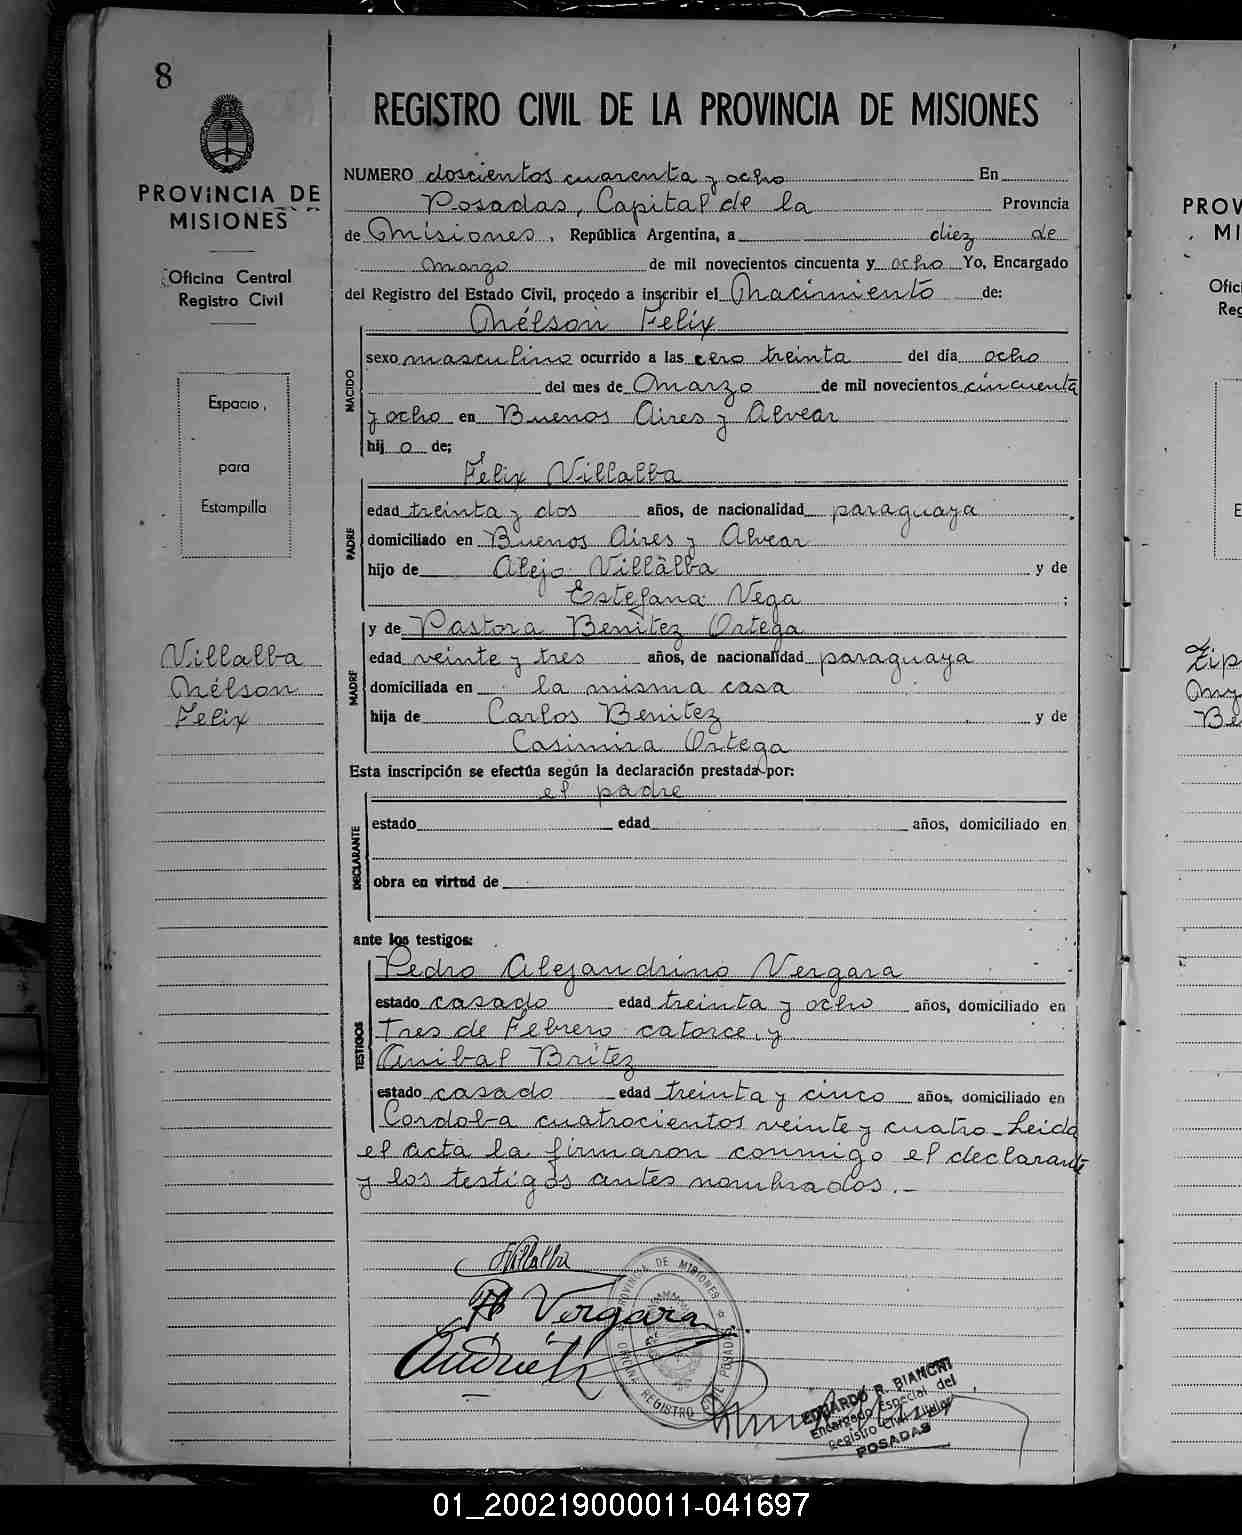 8
PROVINCIA DE
MISIONES
Oficina Central
Registro Civil
Espacio,
para
Estampilla
Villalba
Nélson
Felix
REGISTRO CIVIL DE LA PROVINCIA DE MISIONES
NUMERO doscientos cuarenta y ocho En
Posadas, Capital de la Provincia
de Misiones, República Argentina, a diez de
marzo de mil novecientos cincuenta y ocho Yo, Encargado
del Registro del Estado Civil, procedo a inscribir el Nacimiento de:
Nélson Felix
NACIDO
sexo masculino ocurrido a las cero treinta del día ocho
del mes de Marzo de mil novecientos cincuenta
y ocho en Buenos Aires y Alvear
hij o de;
Félix Villalba
PADRE
edad treinta y dos años, de nacionalidad paraguaya
domiciliado en Buenos Aires y Alvear
hijo de Alejo Villalba y de
Estefana Vega ;
y de Pastora Benitez Ortega
MADRE
edad veinte y tres años, de nacionalidad paraguaya
domiciliada en la misma casa
hija de Carlos Benitez y de
Casimira Ortega
Esta inscripción se efectúa según la declaración prestada por:
el padre
DECLARANTE
estado edad años, domiciliado en
obra en virtud de
ante los testigos:
Pedro Alejandrino Vergara
TESTIGOS
estado casado edad treinta y ocho años, domiciliado en
Tres de Febrero catorce, y
Anibal Britez
estado casado edad treinta y cinco años, domiciliado en
Cordoba cuatrocientos veinte y cuatro - Leida
el acta la firmaron conmigo el declarante
y los testigos antes nombrados. -
Villalba
Vergara
PROVINCIA DE MISIONES
OFICINA REGISTRO CIVIL POSADAS
EDUARDO R. BIANCHI
Encargado Especial del
Registro Civil
POSADAS
PROV
MI
Ofici
Reg
E
Zip
Be
01_200219000011-041697